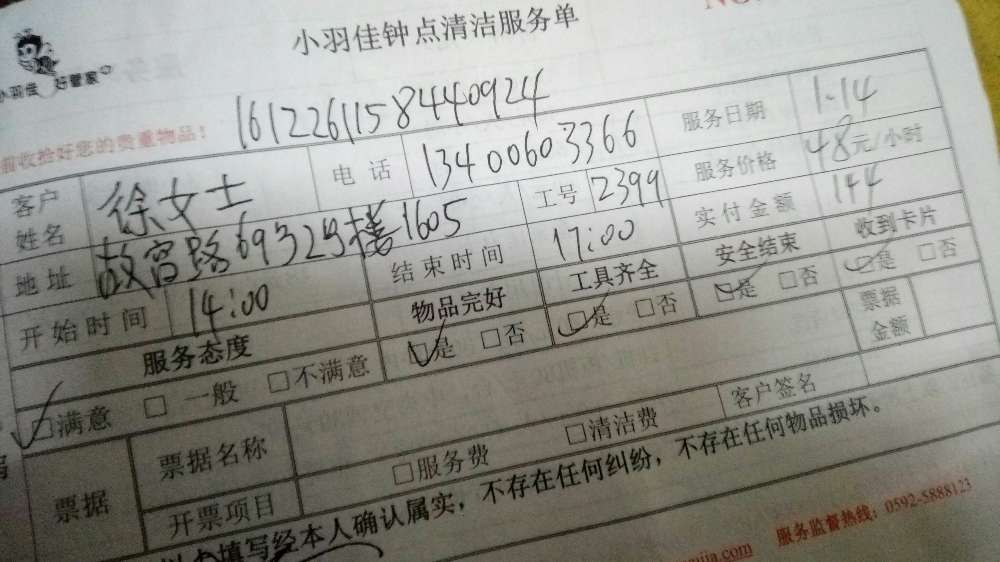 小羽佳钟点清洁服务单
NO
小羽佳 好管家
收拾好您的贵重物品！
1612261158440924
客户姓名 徐女士 电话 13400603366 服务日期 1.14
地址 故宫路6932号楼1605 工号 2399 服务价格 48元/小时
开始时间 14:00 结束时间 17:00 实付金额 144
服务态度 物品完好 工具齐全 安全结束 收到卡片
□满意 □一般 □不满意 □是 □否 □是 □否 □是 □否 □是 □否
票据 票据名称 票据金额
开票项目 □服务费 □清洁费 客户签名
填写经本人确认属实，不存在任何纠纷，不存在任何物品损坏。
jia.com 服务监督热线：0592-5888123